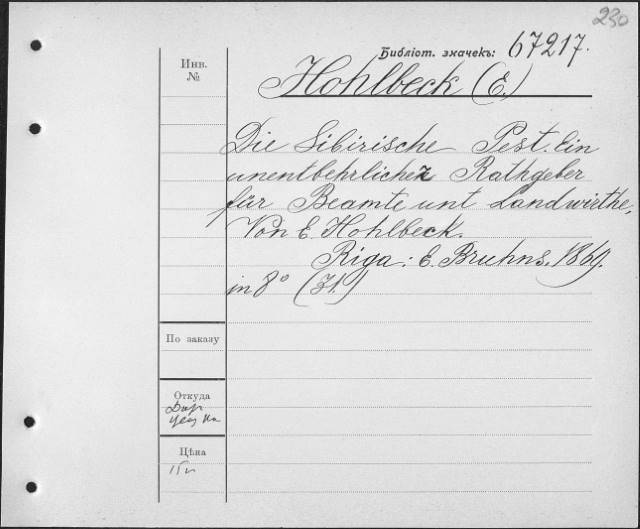 230
Библіот. значекъ: 67217.
Инв.
№
Hohlbeck (E.)
Die Sibirische Pest. Ein
unentbehrlicher Rathgeber
für Beamte unt Landwirthe,
Von E. Hohlbeck.
Riga: E. Bruhns. 1869.
in 8° (31.)
По заказу
Откуда
Дар
Цѣна